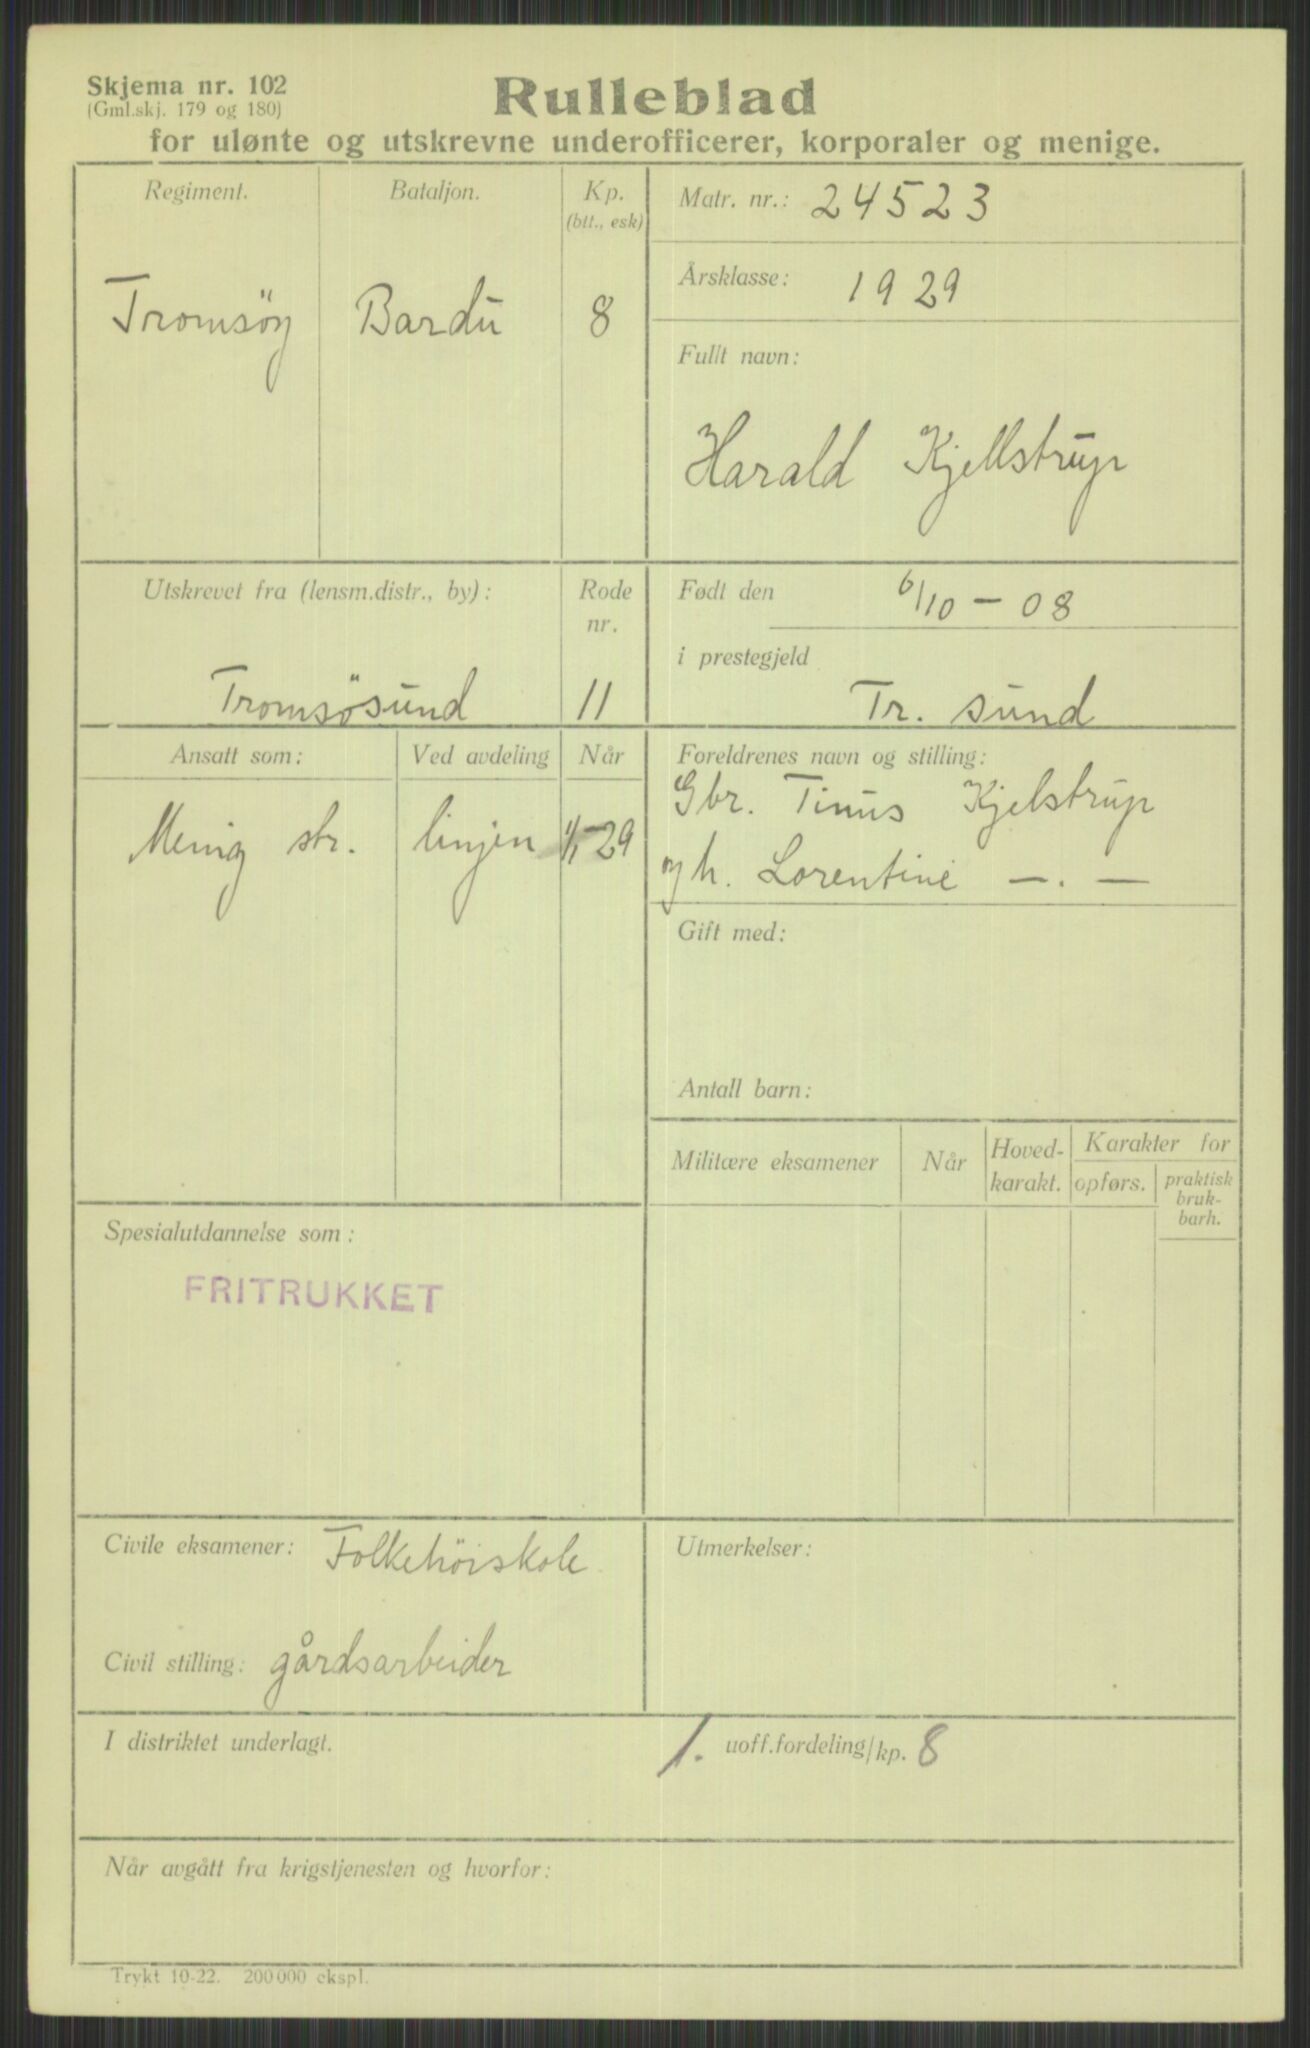 Skjema nr. 102
(Gml.skj. 179 og 180)
Rulleblad
for ulønte og utskrevne underofficerer, korporaler og menige.
Regiment.
Bataljon.
Kp.
(btt., esk)
Tromsöy
Bardu
8
Matr. nr.: 24523
Årsklasse: 1929
Fullt navn:
Harald Kjellstrup
Utskrevet fra (lensm.distr., by):
Rode
nr.
Tromsösund
11
Født den 6/10 - 08
i prestegjeld
Tr. sund
Ansatt som:
Ved avdeling
Når
Menig str.
linjen
1/1-29
Foreldrenes navn og stilling:
Gbr. Tinus Kjelstrup
og h. Lorentine — . —
Gift med:
Antall barn:
Militære eksamener
Når
Hoved-
karakt.
Karakter for
opførs.
praktisk
bruk-
barh.
Spesialutdannelse som:
FRITRUKKET
Civile eksamener: Folkehöiskole
Civil stilling: gårdsarbeider
Utmerkelser:
I distriktet underlagt.
1. uoff.fordeling/kp. 8
Når avgått fra krigstjenesten og hvorfor:
Trykt 10-22. 200 000 ekspl.